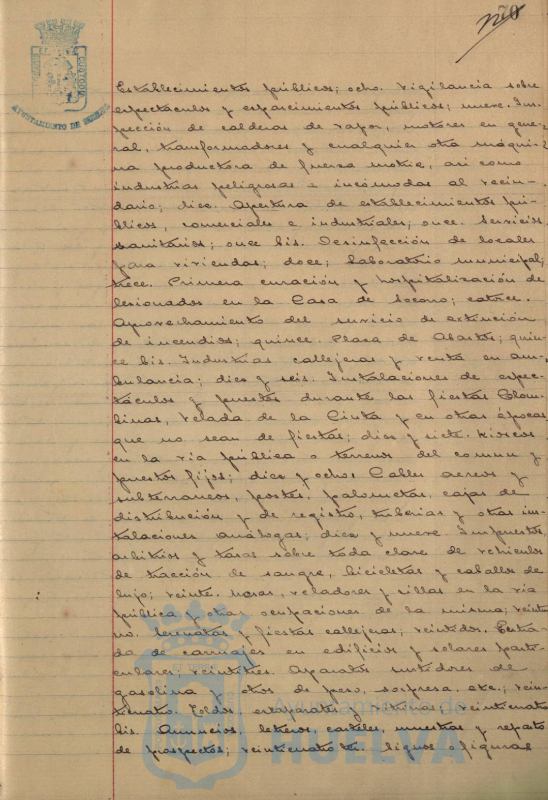 70
AYUNTAMIENTO DE HUELVA
Establecimientos públicos; ocho. Vigilancia sobre
espectaculos y esparcimientos públicos; nueve. Ins-
pección de calderas de vapor, motores en gene-
ral, transformadores y cualquier otra máqui-
na productora de fuerza motriz, asi como
industrias peligrosas e incómodas al vecin-
dario; diez. Apertura de establecimientos pú-
blicos, comerciales e industriales; once. Servicios
sanitarios; once bis. Desinfección de locales
para viviendas; doce; Laboratorio municipal;
trece. Primera curación y hospitalización de
lesionados en la Casa de Socorro; catorce.
Aprovechamiento del servicio de extinción
de incendios; quince. Plaza de Abastos; quin-
ce bis. Industrias callejeras y venta en am-
bulancia; diez y seis. Instalaciones de espec-
táculos y puestos durante las fiestas Colom-
binas, Velada de la Cinta y en otras épocas
que no sean de fiestas; diez y siete. Kioscos
en la vía pública o terrenos del comun y
puestos fijos; diez y ocho. Cables aereos y
subterraneos, postes, palometas, cajas de
distribución y de registro, tuberias y otras ins-
talaciones análogas; diez y nueve. Impuestos,
arbitrios y tasas sobre toda clase de vehiculos
de tracción de sangre, bicicletas y caballos de
lujo; veinte. Mesas, veladores y sillas en la vía
pública y otras ocupaciones de la misma; veinti-
uno. Serenatas y fiestas callejeras; veintidos. Entra-
da de carruajes en edificios y solares parti-
culares; veintitres. Aparatos surtidores de
gasolina y otros de peso, sorpresa, etc.; vein-
ticuatro. Toldos, escaparates y vitrinas; veinticuatro
bis. Anuncios, letreros, carteles, muestras y reparto
de prospectos; veinticuatro ter. Signos o figuras
Ayuntamiento de
HUELVA